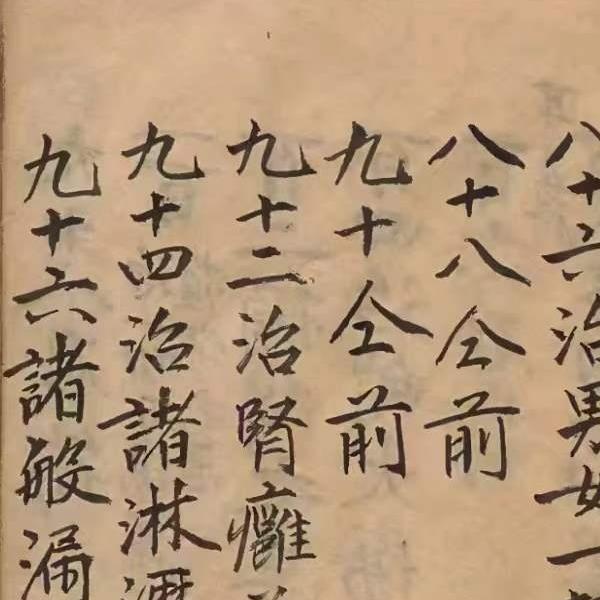 八十六治男女一
八十八仝前
九十仝前
九十二治腎癰
九十四治諸淋
九十六諸般漏